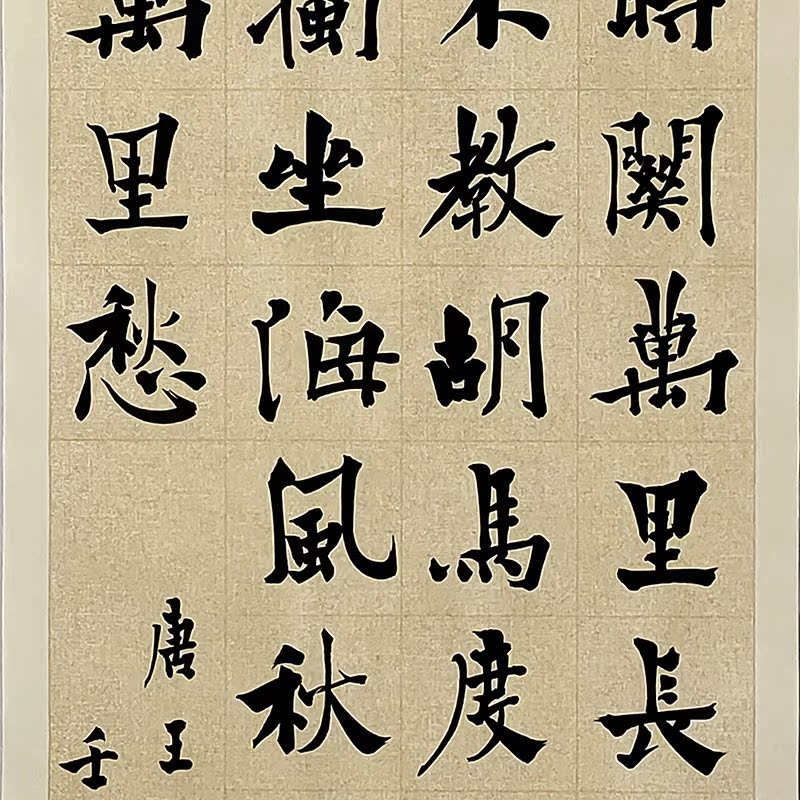 時關萬里長
不教胡馬度
獨坐海風秋
萬里愁
唐王
壬